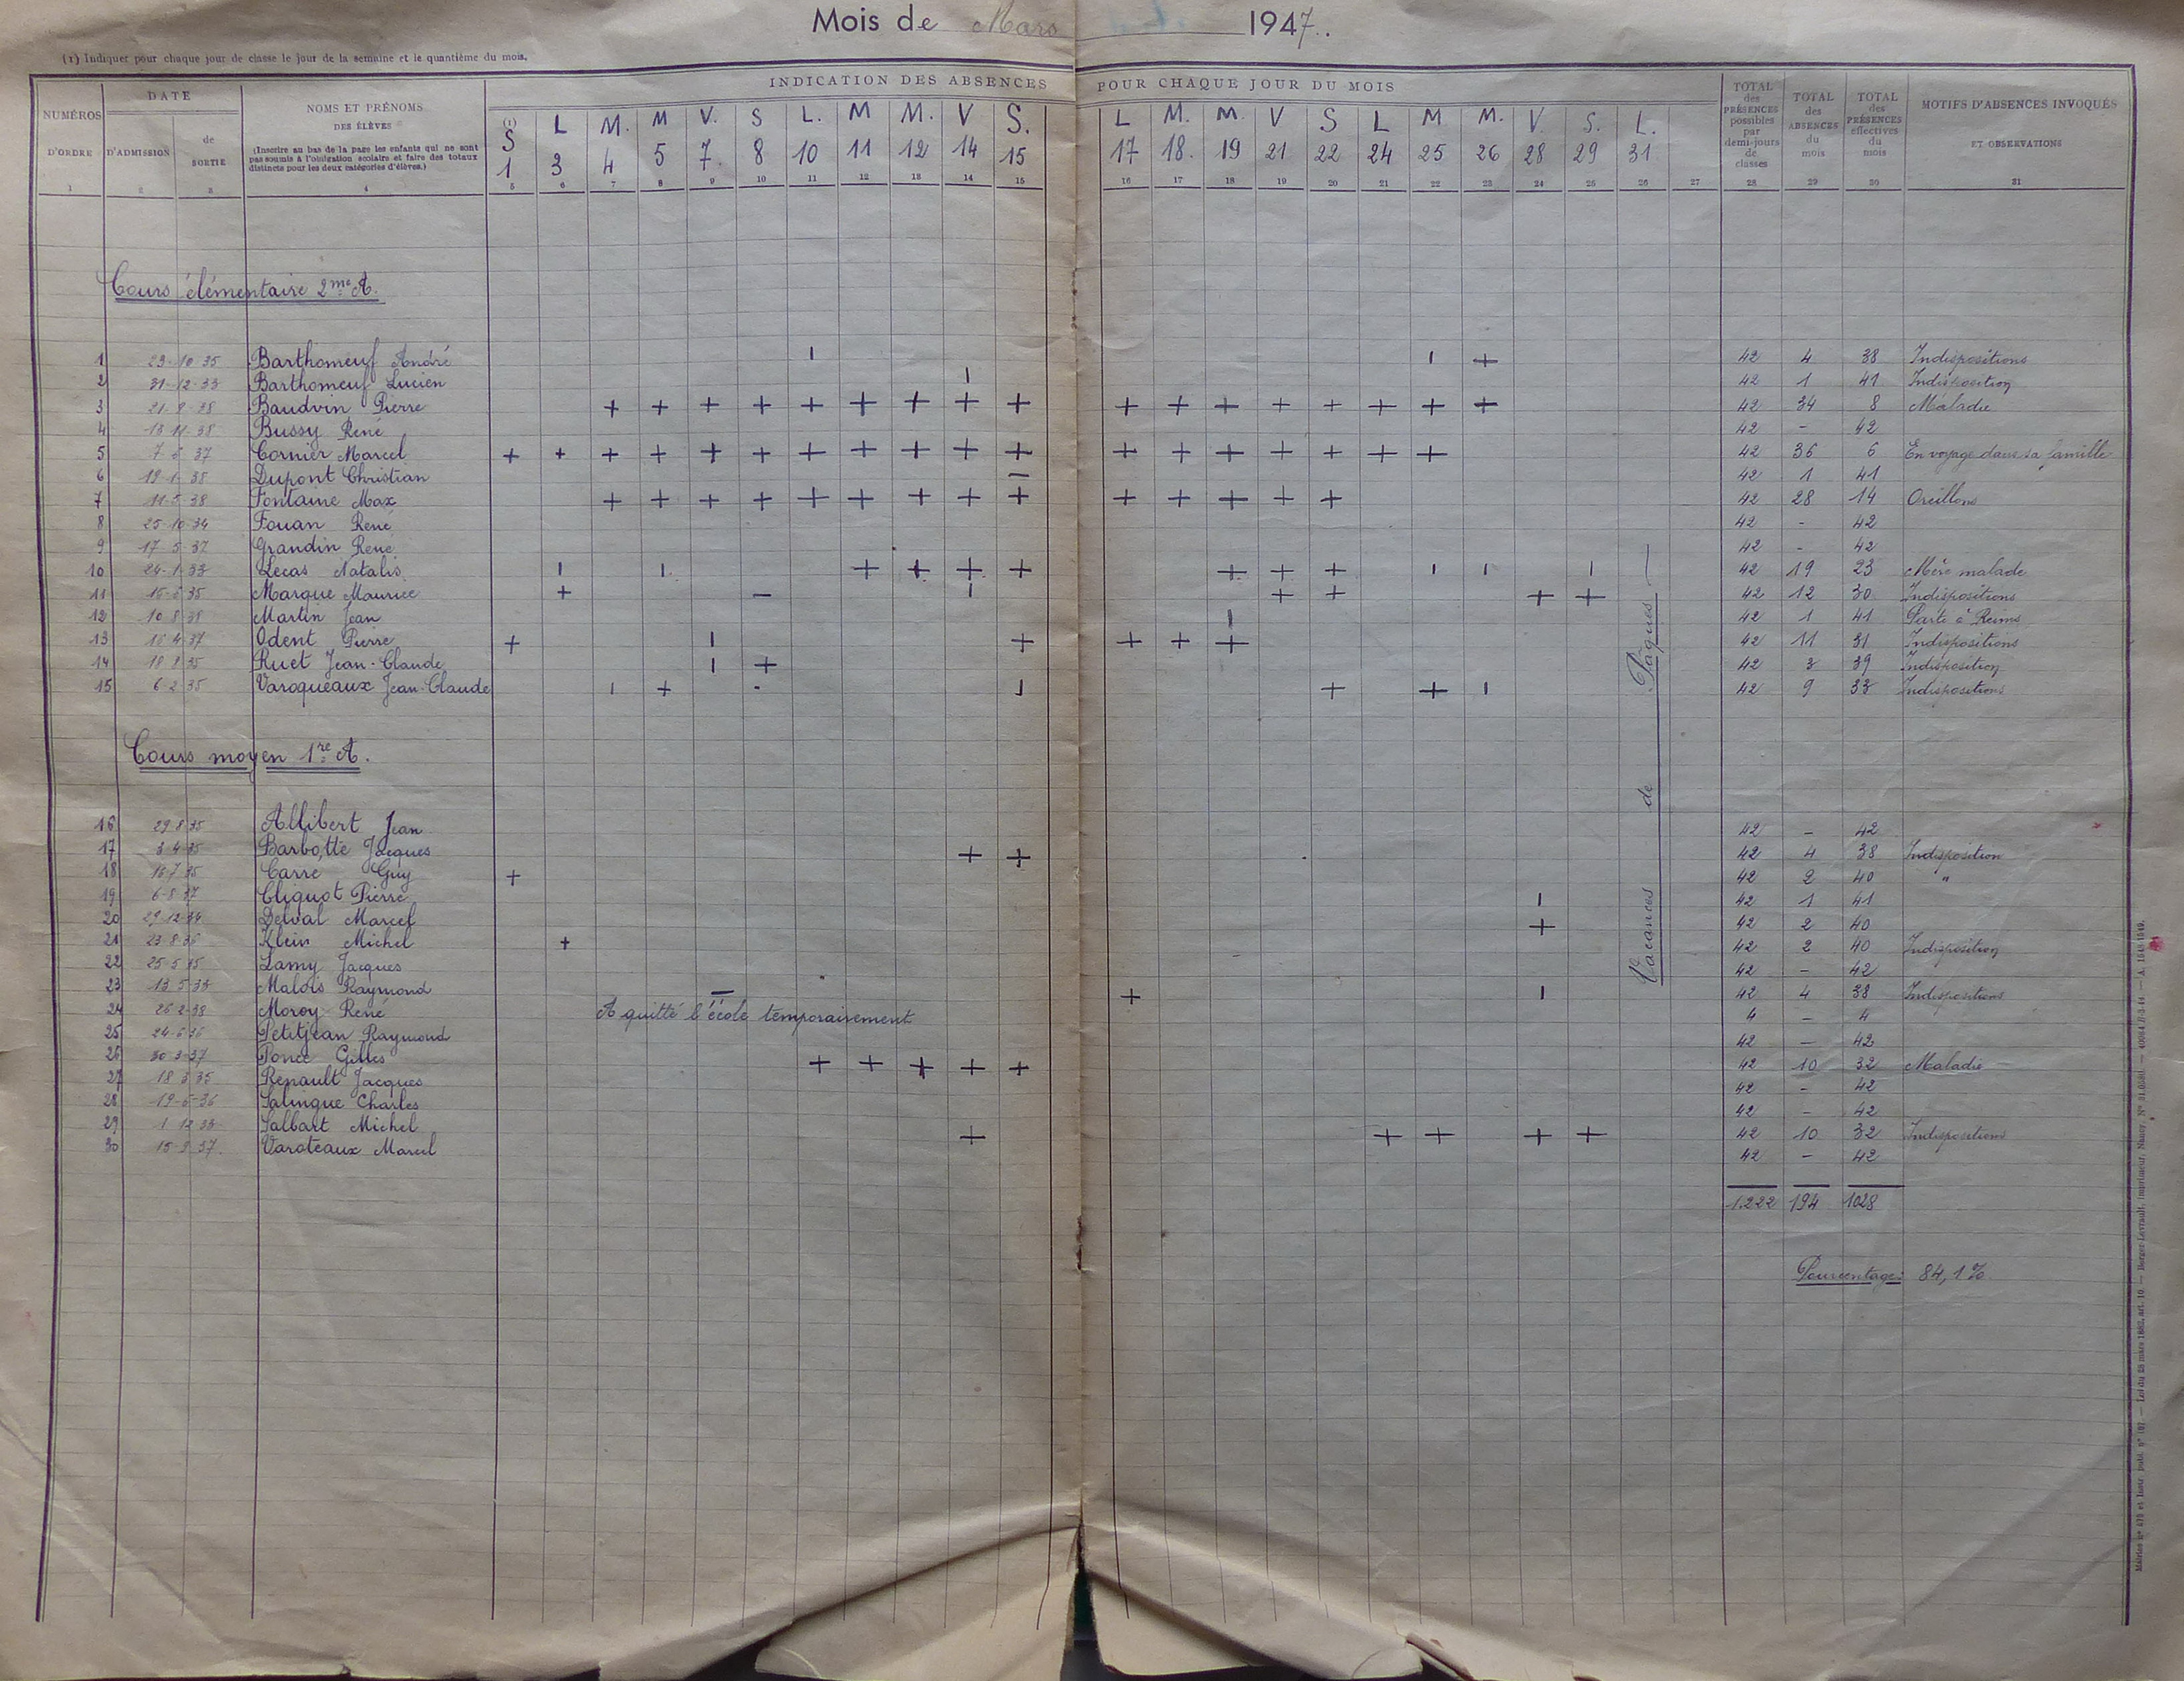 Mois de Mars 1947
(1) Indiquer pour chaque jour de classe le jour de la semaine et le quantième du mois.
INDICATION DES ABSENCES POUR CHAQUE JOUR DU MOIS
NUMÉROS D'ORDRE
DATE
D'ADMISSION
de SORTIE
NOMS ET PRÉNOMS
DES ÉLÈVES
(Inscrire au bas de la page les enfants qui ne sont
pas soumis à l'obligation scolaire et faire des totaux
distincts pour les deux catégories d'élèves.)
TOTAL des PRÉSENCES possibles par demi-jours de classes
TOTAL des ABSENCES du mois
TOTAL des PRÉSENCES effectives du mois
MOTIFS D'ABSENCES INVOQUÉS
ET OBSERVATIONS
(1)
S L M. M V. S L. M M. V S. L M. M. V S L M M. V. S. L.
1 3 4 5 7. 8 10 11 12 14 15 17 18. 19 21 22 24 25 26 28 29 31
1 2 3 4 5 6 7 8 9 10 11 12 13 14 15 16 17 18 19 20 21 22 23 24 25 26 27 28 29 30 31
Cours élémentaire 2me A.
1 29-10 35 Barthomeuf André ı ı + 42 4 38 Indispositions
2 31-12-33 Barthomeuf Lucien ı 42 1 41 Indisposition
3 Baudvin Pierre + + + + + + + + + + + + + + + + + 42 34 8 Maladie
4 Bussy René 42 - 42
5 Cornier Marcel + + + + + + + + + + + + + + + + + + 42 36 6 En voyage dans sa famille
6 19-1-38 Dupont Christian – 42 1 41
7 11-5-38 Fontaine Max + + + + + + + + + + + + + + 42 28 14 Oreillons
8 25-10-34 Fouan René 42 - 42
9 17 5-37 Grandin René 42 - 42
10 24-1-33 Lecas Natalis ı ı + + + + + + + ı ı ı 42 19 23 Mère malade
11 Marque Maurice + – ı + + + + 42 12 30 Indispositions
12 10 8 38 Martin Jean ı 42 1 41 Parti à Reims
13 Odent Pierre + ı + + + + 42 11 31 Indispositions
14 Ruet Jean-Claude ı + 42 3 39 Indisposition
15 6 2 35 Varoqueaux Jean-Claude ı + - ı + + ı 42 9 33 Indispositions
Cours moyen 1re A.
16 29 8 35 Allibert Jean 42 – 42
17 3-4-35 Barbotte Jacques + + 42 4 38 Indisposition
18 Carré Guy + 42 2 40 "
19 6-8-37 Cliquot Pierre ı 42 1 41
20 29 12 34 Delval Marcel + 42 2 40
21 Klein Michel + 42 2 40 Indisposition
22 Lamy Jacques 42 – 42
23 13-5-33 Malois Raymond – + ı 42 4 38 Indispositions
24 26-2-38 Moroy René A quitté l'école temporairement 4 – 4
25 24-6-36 Petitjean Raymond 42 – 42
26 30 3-37 Ponce Gilles + + + + + 42 10 32 Maladie
27 18 3 35 Renault Jacques 42 - 42
28 Salingue Charles 42 - 42
29 1 12 33 Salbart Michel + + + + + 42 10 32 Indispositions
30 Varoteaux Marcel 42 – 42
Vacances de Pâques
1.222 194 1028
Pourcentage: 84,1 %